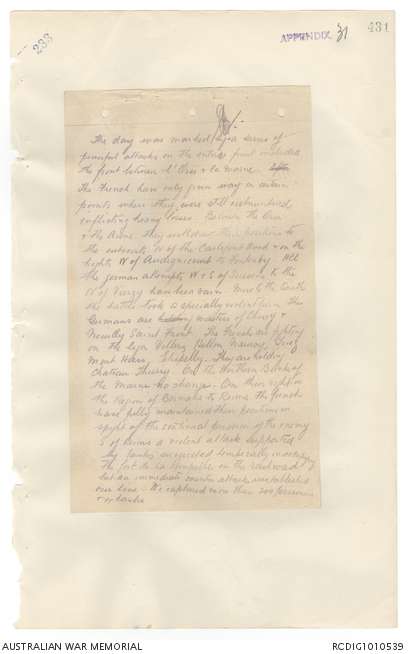 233
APPENDIX 31
431
The day was marked by a series of
powerful attacks on the entire front included
the front between L'Oise & la Marne.
The French have only given way in certain
points where they were still outnumbered
inflicting heavy losses. Between the Oise
& the Aisne they withdrew their positions to
the outskirts N of the Carlepont Wood & on the
heights W of Audignicourt to Fontenoy. All
the german attempts W & S of Soissons to the
N of Vierzy have been vain. More to the South
the battle took a specially violent turn. The
Germans are masters of Chouy &
Neuilly Saint Front. The French are fighting
on the lign Villers Helon Noroy, Priez
Mont Hiers, Etrepilly. They are holding
Chateau Thierry. On the Northern Banks of
the Marne no change. On their right in
the region of Rheims the french
have fully maintained their positions in
spyte of the continual pression of the enemy
S of Reims a violent attack supported
by tanks succeeded temporarily
the fort de la Pompelle on the railroad
but an immediate counter attack reestablished
our line. We captured more than 200 prisoners
& 4 tanks
AUSTRALIAN WAR MEMORIAL
RCDIG1010539